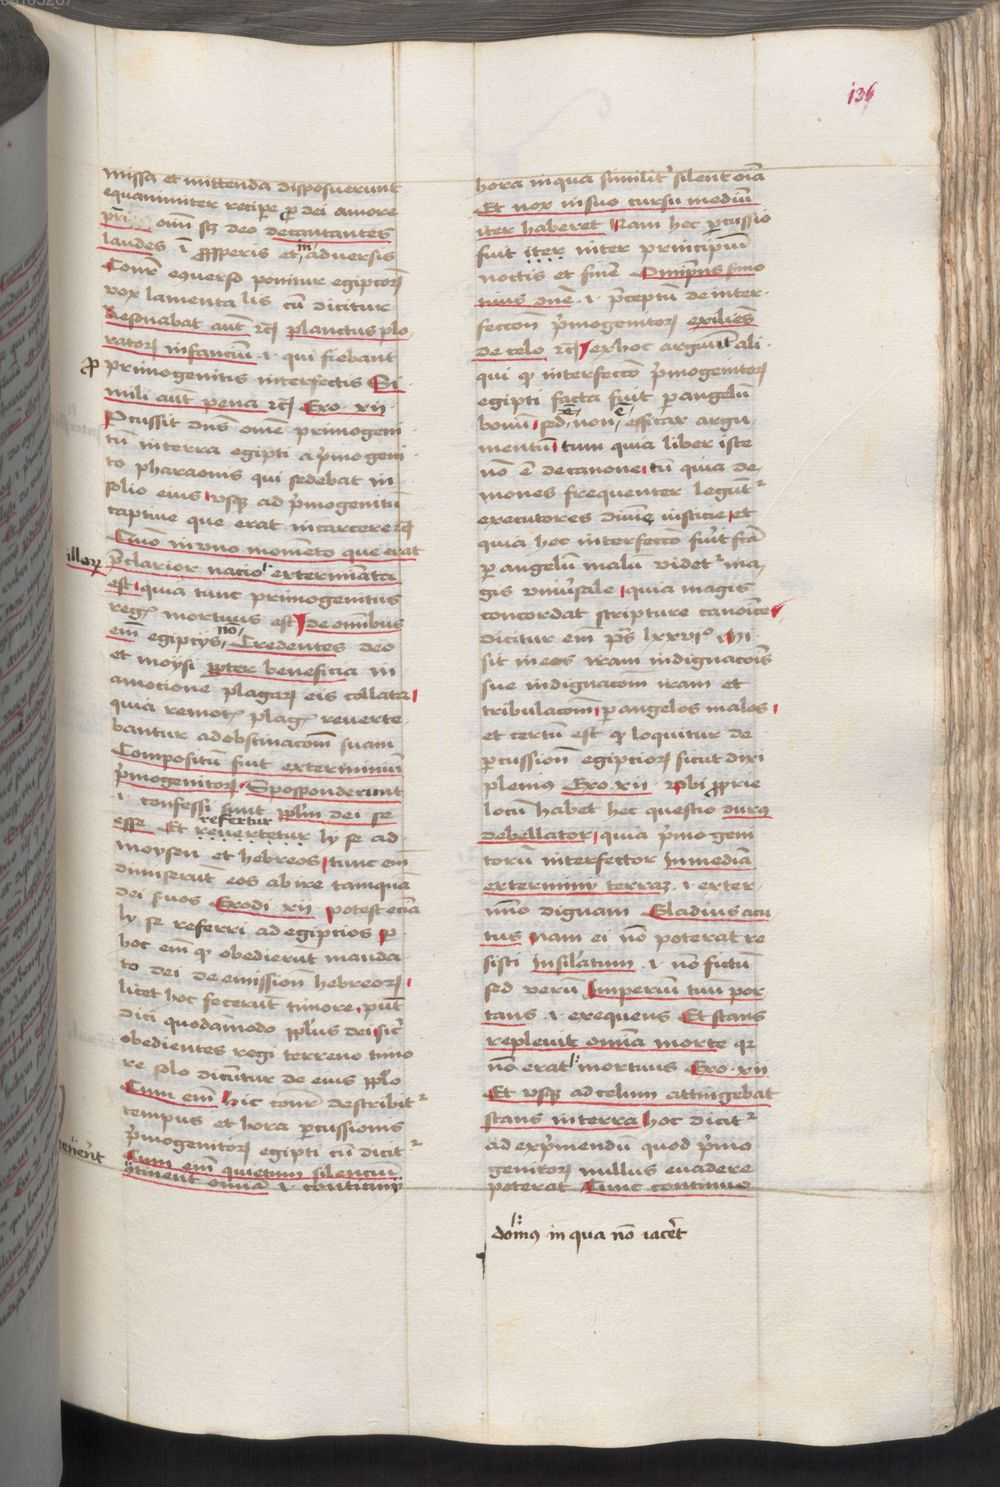 136
missa et mittenda disposuerunt
equanimiter recipe ꝓ dei amore
om̄i sꝫ deo decantantes
laudes ī ꝓsperis et in adversis
Contͬ equerso ponitur egiptioꝝ
vox lamenta lis cū dicitur
Resonabat aut̄ ⁊c̄ planctus plo
ratoꝝ infanciū .i. qui fiebant
ꝓ primogenitis interfectis Si
mili aut̄ pena ⁊c̄ Exo. xii.
Pcussit dn̄s om̄e primogeni
tū in terra egipti a p̄mogeni
to pharaonis qui sedebat in
solio eius vsqꝫ ad p̄mogenitū
captiue que erat in carcere ⁊c̄
Quō in vno momēto que erat
illoꝝ
p̄clarior nacio exterminata
est quia tunc primogenitus
regꝭ mortuus est de om̄ibus
em̄ egiptijs nō Credentes deo
et moysi ꝓpter beneficia in
amocione plagaꝝ eis collata
quia remotꝭ plagꝭ reverte
bantur ad obstinacōm̄ suam
Compositū fuit exterminiū
p̄mogenitoꝝ Spoponderunt
.i. confessi sunt ppl̄m dei se
refertur
esse Et revertetur ly se ad
moysen et hebreos tunc em̄
dimiserūt eos abire tamquā
dei suos Exodi xii potest eciā
ly se referri ad egipcios ꝑ
hoc em̄ qͥ obedierūt manda
to dei de emissiōn hebreoꝝ
licet hoc fecerūt timore pn̄t
dici quodāmodo ppl̄us dei sic̄
obedientes regi terreno timo
re solo dicūtur de eius ppl̄o
Cum em̄ hic contͬ describitᷣ
tempus et hora ꝑcussionis
p̄mogenitoꝝ egipti cū dicitᷣ
Cum em̄ quietum silenciū
ꝯtinent omnia .i. conticiniū
hora in qua similitͬ silent oīa
Et nox in suo cursu mediū
iter haberet Nam hec ꝑcussio
fuit iter inter principiū
noctis et finē Omīpn̄s smo
tuus om̄e .i. p̄ceptū de inter
feccōn p̄mogenitoꝝ exiliēs
de celo ⁊c̄ ex hoc arguūt ali
qui qͥ interfeccō p̄mogenitoꝝ
egipti facta fuit ꝑ angelū
bonū sed non ē efficax argu
mentū tum quia liber iste
nō ē de canone tū quia de
mones frequenter legūtᷣ
executores diuine iusticie et
quia hec interfeccō fuīt fc̄ā
ꝑ angelū malū videtᷣ ma
gis vniūsale quia magis
concordat scripture canoīce
dicitur em̄ pͣs lxxvijº Mi
sit in eos iram indignacōis
sue indignacōm iram et
tribulacōm ꝑ angelos malos
et certū est qͥ loquitur de
ꝑcussiōn egiptioꝝ sicut dixi
plenius Exo. xii. vbi ꝓprie
locū habet hec questio durꝰ
debellator quia p̄mogeni
torū interfector In mediā
exterminij terraꝫ .i. exter
mīo dignam Gladius acu
tus nam ei nō poterat re
sisti Insil̄atum .i. nō fictū
sed verū Imperiū tuū por
tans .i. exequens Et stans
replevit omīa morte qꝛ
nō erat mortuus Exo. xii
Et vsqꝫ ad celum attingebat
stans in terra hoc dicitᷣ
ad exp̄mendū quod p̄mo
genitoꝝ nullus evadere
poterat Tunc continuo
domꝰ in qua nō iacēt